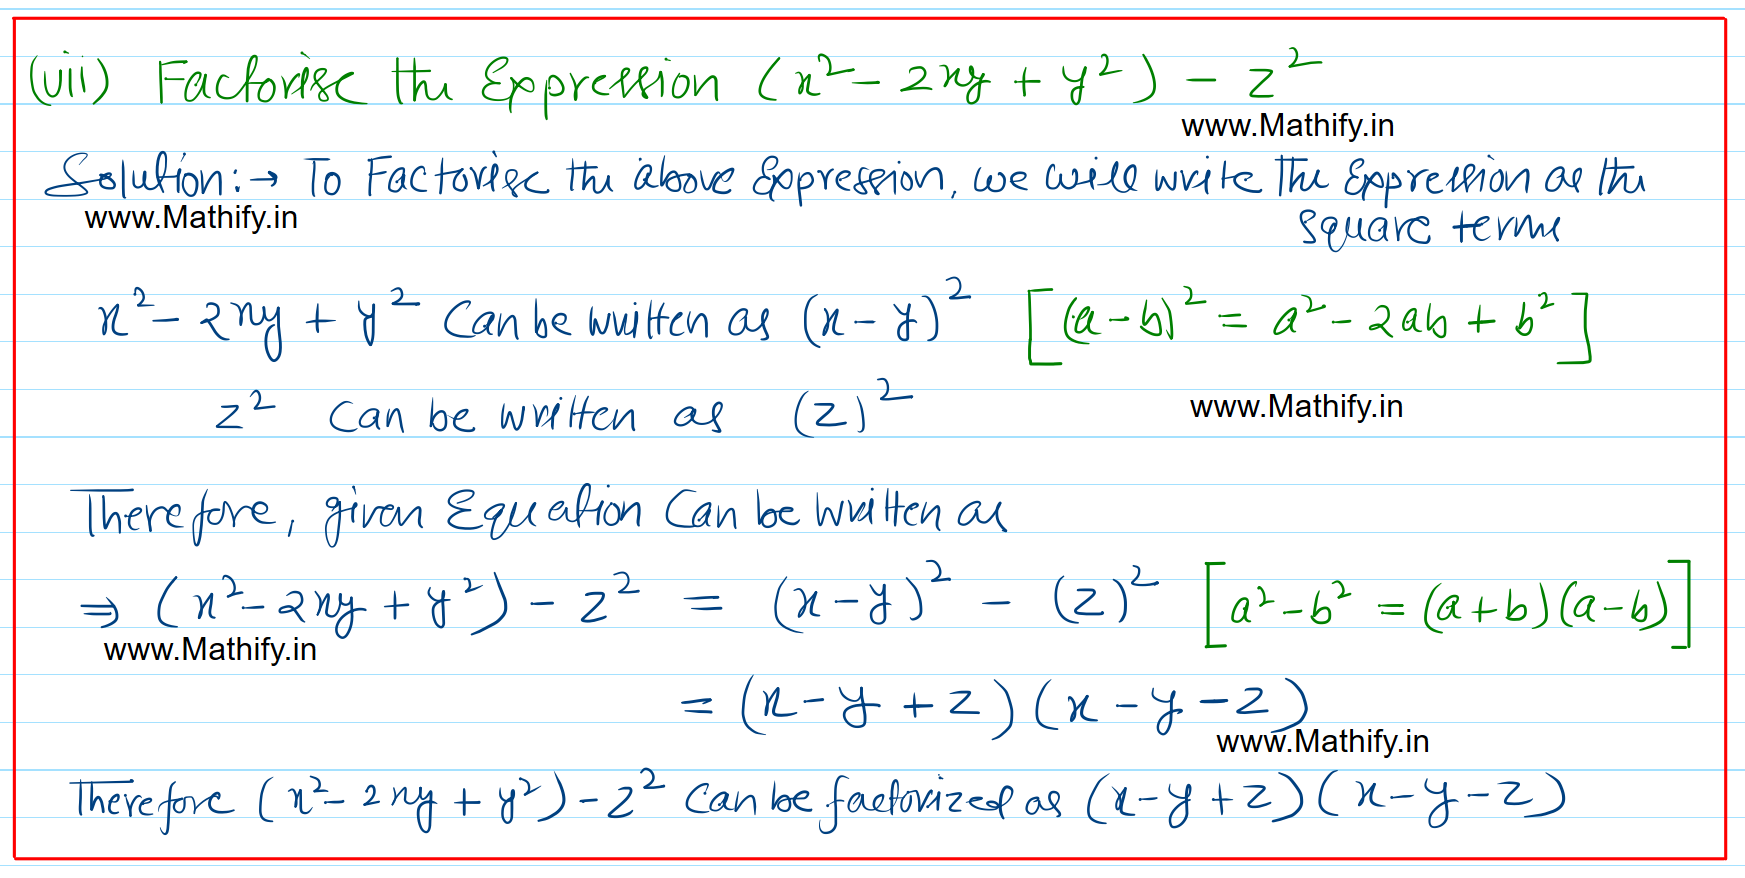 (vii) Factorise the Expression (x² - 2xy + y²) - z²
www.Mathify.in
Solution:→ To Factorise the above Expression, we will write the Expression as the
square terms
www.Mathify.in
x² - 2xy + y² Can be written as (x - y)² [(a - b)² = a² - 2ab + b²]
z² can be written as (z)²
www.Mathify.in
Therefore, given Equation Can be written as
⇒ (x² - 2xy + y²) - z² = (x - y)² - (z)² [a² - b² = (a + b)(a - b)]
www.Mathify.in
= (x - y + z)(x - y - z)
www.Mathify.in
Therefore (x² - 2xy + y²) - z² Can be factorized as (x - y + z)(x - y - z)